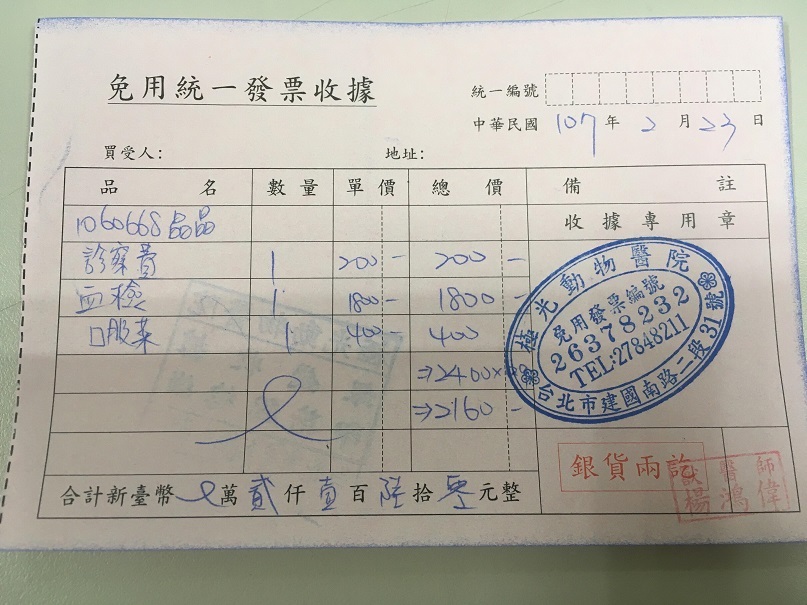 免用統一發票收據
統一編號
中華民國 107 年 2 月 23 日
買受人: 地址:
品 名 數量 單價 總 價 備 註
1060668 晶晶 收據專用章
診察費 1 200- 200-
血檢 1 1800- 1800-
口服葯 1 400- 400
⇒2400×
⇒2160-
極光動物醫院
免用發票編號
26378232
TEL:27848211
台北市建國南路二段31號
銀貨兩訖
獸醫師
楊鴻偉
合計新臺幣 萬貳仟壹百陸拾零元整